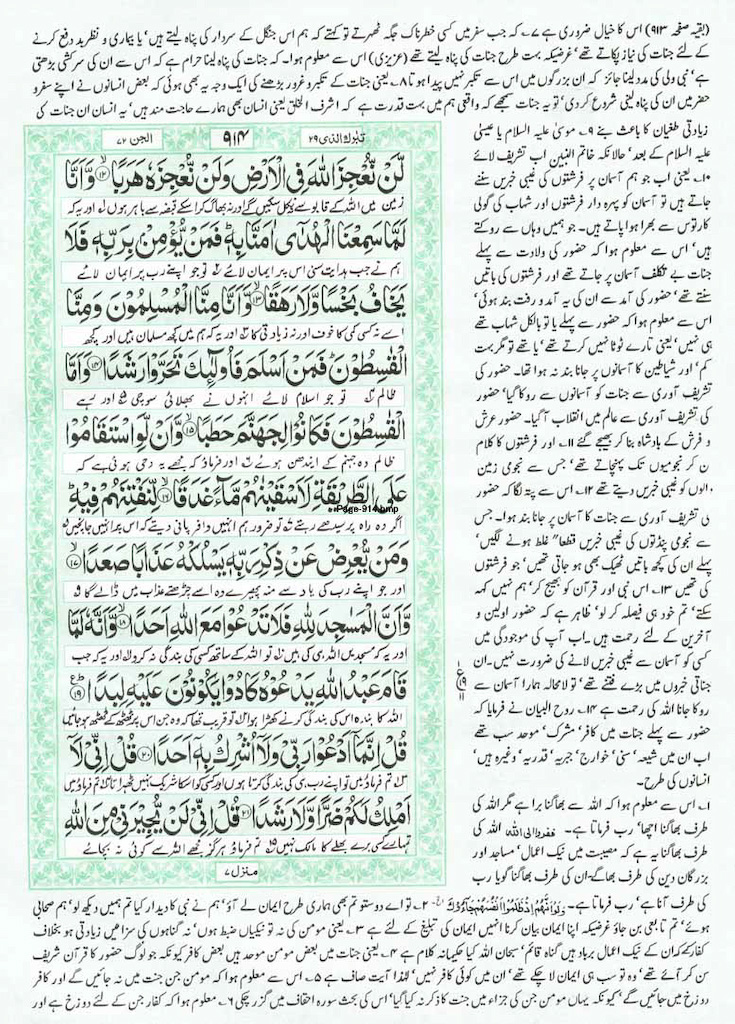 (بقیہ صفحہ ۹۱۳) اس کا خیال ضروری ہے ۷۔ کہ جب سفر میں کسی خطرناک جگہ ٹھہرتے تو کہتے کہ ہم اس جنگل کے سردار کی پناہ لیتے ہیں' یا بیماری و نظر بد دفع کرنے
کے لئے جنات کی نیاز پکاتے تھے' غرضیکہ بہت طرح جنات کی پناہ لیتے تھے (عزیزی) اس سے معلوم ہوا۔ کہ جنات کی پناہ لینا حرام ہے کہ اس سے ان کی سرکشی بڑھتی
ہے' نبی ولی کی مدد لینا جائز کہ ان بزرگوں میں اس سے تکبر نہیں پیدا ہوتا ۸۔ یعنی جنات کے تکبر و غرور بڑھنے کی ایک وجہ یہ بھی ہوئی کہ بعض انسانوں نے اپنے سفر و
حضر میں ان کی پناہ لینی شروع کر دی' تو یہ جنات سمجھے کہ واقعی ہم میں بہت قدرت ہے کہ اشرف الخلق یعنی انسان بھی ہمارے حاجت مند ہیں' یہ انسان ان جنات کی
زیادتی طغیان کا باعث بنے ۹۔ موسیٰ علیہ السلام یا عیسیٰ
علیہ السلام کے بعد' حالانکہ خاتم النبین اب تشریف لائے
۱۰۔ یعنی اب جو ہم آسمان پر فرشتوں کی غیبی خبریں سننے
جاتے ہیں تو آسمان کو پہرہ دار فرشتوں اور شہاب کی گولی
کارتوس سے بھرا ہوا پاتے ہیں۔ جو ہمیں وہاں سے روکتے
ہیں' اس سے معلوم ہوا کہ حضور کی ولادت سے پہلے
جنات بے تکلف آسمان پر جاتے تھے اور فرشتوں کی باتیں
سنتے تھے' حضور کی آمد سے ان کی یہ آمد و رفت بند ہوئی'
اس سے معلوم ہوا کہ حضور سے پہلے یا تو بالکل شہاب تھے
ہی نہیں' یعنی تارے ٹوٹا نہیں کرتے تھے' یا تھے تو مگر بہت
کم' اور شیاطین کا آسمانوں پر جانا بند نہ ہوا تھا۔ حضور کی
تشریف آوری سے جنات کو آسمانوں سے روکا گیا' حضور
کی تشریف آوری سے عالم میں انقلاب آ گیا۔ حضور عرش
و فرش کے بادشاہ بنا کر بھیجے گئے ۱۱۔ اور فرشتوں کا کلام
ن کر نجومیوں تک پہنچاتے تھے' جس سے نجومی زمین
الوں کو غیبی خبریں دیتے تھے ۱۲۔ اس سے پتہ لگا کہ حضور
ی تشریف آوری سے جنات کا آسمان پر جانا بند ہوا۔ جس
سے نجومی پنڈتوں کی غیبی خبریں قطعا" غلط ہونے لگیں'
پہلے ان کی کچھ باتیں ٹھیک بھی ہو جاتی تھیں' جو فرشتوں
کی تھیں ۱۳۔ اس نبی اور قرآن کو بھیج کر' ہم نہیں کہہ
سکتے' تم خود ہی فیصلہ کر لو' ظاہر ہے کہ حضور اولین و
آخرین کے لئے رحمت ہیں۔ اب آپ کی موجودگی میں
کسی کو آسمان سے غیبی خبریں لانے کی ضرورت نہیں۔ ان
جناتی خبروں میں بڑے فتنے تھے' تو لامحالہ ہمارا آسمان سے
روکا جانا اللہ کی رحمت ہے ۱۴۔ روح البیان نے فرمایا کہ
جس طرح جنات میں کافر' مشرک' موحد سب تھے
اب ان میں شیعہ' سنی' خوارج' جبریہ' قدریہ' وغیرہ ہیں'
انسانوں کی طرح۔
۱۔ اس سے معلوم ہوا کہ اللہ سے بھاگنا برا ہے مگر اللہ کی
طرف بھاگنا اچھا' رب فرماتا ہے۔ ففروا الی اللہ اللہ کی
طرف بھاگنا یہ ہے کہ مصیبت میں نیک اعمال' مساجد اور
بزرگان دین کی طرف بھاگے۔ ان کی طرف بھاگنا گویا رب
الجن ۷۲
۹۱۴
تبارك الذی ۲۹
لَّنْ نُّعْجِزَ اللّٰهَ فِی الْاَرْضِ وَلَنْ نُّعْجِزَهٗ هَرَبًا ۱۲ وَّاَنَّا
زمین میں اللہ کے قابو سے نہ نکل سکیں گے اور نہ بھاگ کر اسکے قبضہ سے باہر ہوں اور یہ کہ
لَمَّا سَمِعْنَا الْهُدٰۤى اٰمَنَّا بِهٖ فَمَنْ یُّؤْمِنْۢ بِرَبِّهٖ فَلَا
ہم نے جب ہدایت سنی اس پر ایمان لائے تو جو اپنے رب پر ایمان لائے
یَخَافُ بَخْسًا وَّلَا رَهَقًا ۱۳ وَّاَنَّا مِنَّا الْمُسْلِمُوْنَ وَمِنَّا
اسے نہ کسی کمی کا خوف اور نہ زیادتی کا اور یہ کہ ہم میں کچھ مسلمان ہیں اور کچھ
الْقٰسِطُوْنَ فَمَنْ اَسْلَمَ فَاُولٰٓىِٕكَ تَحَرَّوْا رَشَدًا ۱۴ وَاَمَّا
ظالم تو جو اسلام لائے انہوں نے بھلائی سوچی اور رہے
الْقٰسِطُوْنَ فَكَانُوْا لِجَهَنَّمَ حَطَبًا ۱۵ وَّاَنْ لَّوِ اسْتَقَامُوْا
ظالم وہ جہنم کے ایندھن ہوئے اور فرماؤ کہ مجھے یہ وحی ہوئی ہے کہ
عَلَى الطَّرِیْقَةِ لَاَسْقَیْنٰهُمْ مَّآءً غَدَقًا ۱۶ لِّنَفْتِنَهُمْ فِیْهِ
Page-914.bmp
اگر وہ راہ پر سیدھے رہتے تو ضرور ہم انہیں وافر پانی دیتے کہ اس پر انہیں جانچیں
وَمَنْ یُّعْرِضْ عَنْ ذِكْرِ رَبِّهٖ یَسْلُكْهُ عَذَابًا صَعَدًا ۱۷
اور جو اپنے رب کی یاد سے منہ پھیرے وہ اسے چڑھتے عذاب میں ڈالے گا
وَّاَنَّ الْمَسٰجِدَ لِلّٰهِ فَلَا تَدْعُوْا مَعَ اللّٰهِ اَحَدًا ۱۸ وَّاَنَّهٗ لَمَّا
اور یہ کہ مسجدیں اللہ ہی کی ہیں تو اللہ کے ساتھ کسی کی بندگی نہ کرو اور یہ کہ جب
قَامَ عَبْدُ اللّٰهِ یَدْعُوْهُ كَادُوْا یَكُوْنُوْنَ عَلَیْهِ لِبَدًا ۱۹
اللہ کا بندہ اس کی بندگی کرنے کھڑا ہوا تو قریب تھا کہ وہ جن اس پر ٹھٹھ کے ٹھٹھ ہو جائیں
قُلْ اِنَّمَاۤ اَدْعُوْا رَبِّیْ وَلَاۤ اُشْرِكُ بِهٖۤ اَحَدًا ۲۰ قُلْ اِنِّیْ لَاۤ
تم فرماؤ میں تو اپنے رب ہی کی بندگی کرتا ہوں اور کسی کو اسکا شریک نہیں ٹھہراتا تم فرماؤ میں
اَمْلِكُ لَكُمْ ضَرًّا وَّلَا رَشَدًا ۲۱ قُلْ اِنِّیْ لَنْ یُّجِیْرَنِیْ مِنَ اللّٰهِ
تمہارے کسی برے بھلے کا مالک نہیں تم فرماؤ ہرگز مجھے اللہ سے کوئی نہ بچائے
منزل ۷
کی طرف آنا ہے' رب فرماتا ہے۔ ولو انهم اذ ظلموا انفسهم جاءوك الخ۔ ۲۔ تو اے دوستو تم بھی ہماری طرح ایمان لے آؤ' ہم نے نبی کا دیدار کیا تم ہمیں دیکھ لو' ہم صحابی
ہوئے' تم تابعی بن جاؤ غرضیکہ اپنا ایمان بیان کرنا انہیں ایمان کی تبلیغ کے لئے ہے ۳۔ یعنی مومن کی نہ تو نیکیاں ضبط ہوں' نہ گناہوں کی سزا میں زیادتی ہو بخلاف
کفار کے کہ ان کے نیک اعمال برباد گناہ قائم' سبحان اللہ کیا حکیمانہ کلام ہے ۴۔ یعنی جنات میں بعض مومن موحد ہیں بعض کافر کیونکہ جو لوگ حضور کا قرآن شریف
سن کر آئے تھے' وہ تو سب ہی ایمان لا چکے تھے' ان میں کوئی کافر نہیں' لہٰذا آیت صاف ہے ۵۔ اس سے معلوم ہوا کہ مومن جن جنت میں نہ جائیں گے اور کافر
دوزخ میں جائیں گے' کیونکہ یہاں مومن جن کی جزاء میں جنت کا ذکر نہ کیا گیا' اس کی بحث سورہ احقاف میں گزر چکی ۶۔ معلوم ہوا کہ کفار جن کے لئے دوزخ ہے اور